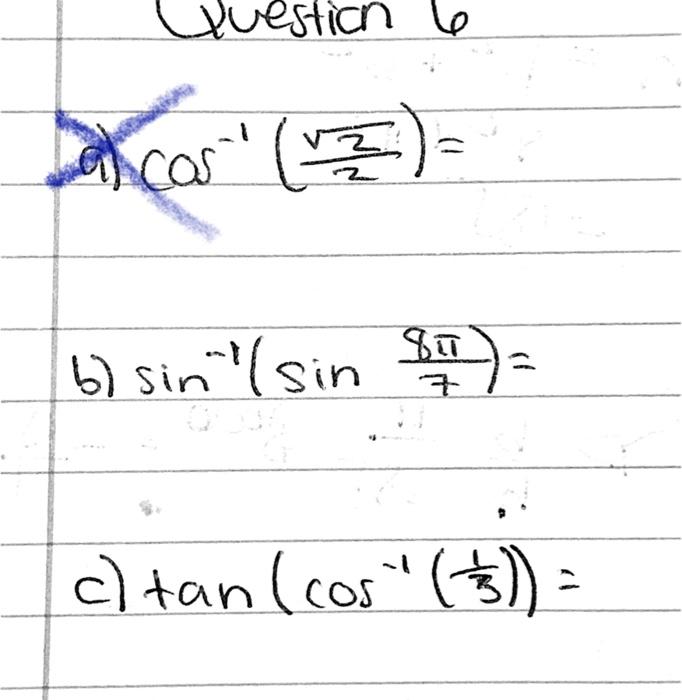 Question 6
a) cos⁻¹ (√2/2) =
b) sin⁻¹(sin 8π/7) =
c) tan (cos⁻¹ (1/3)) =